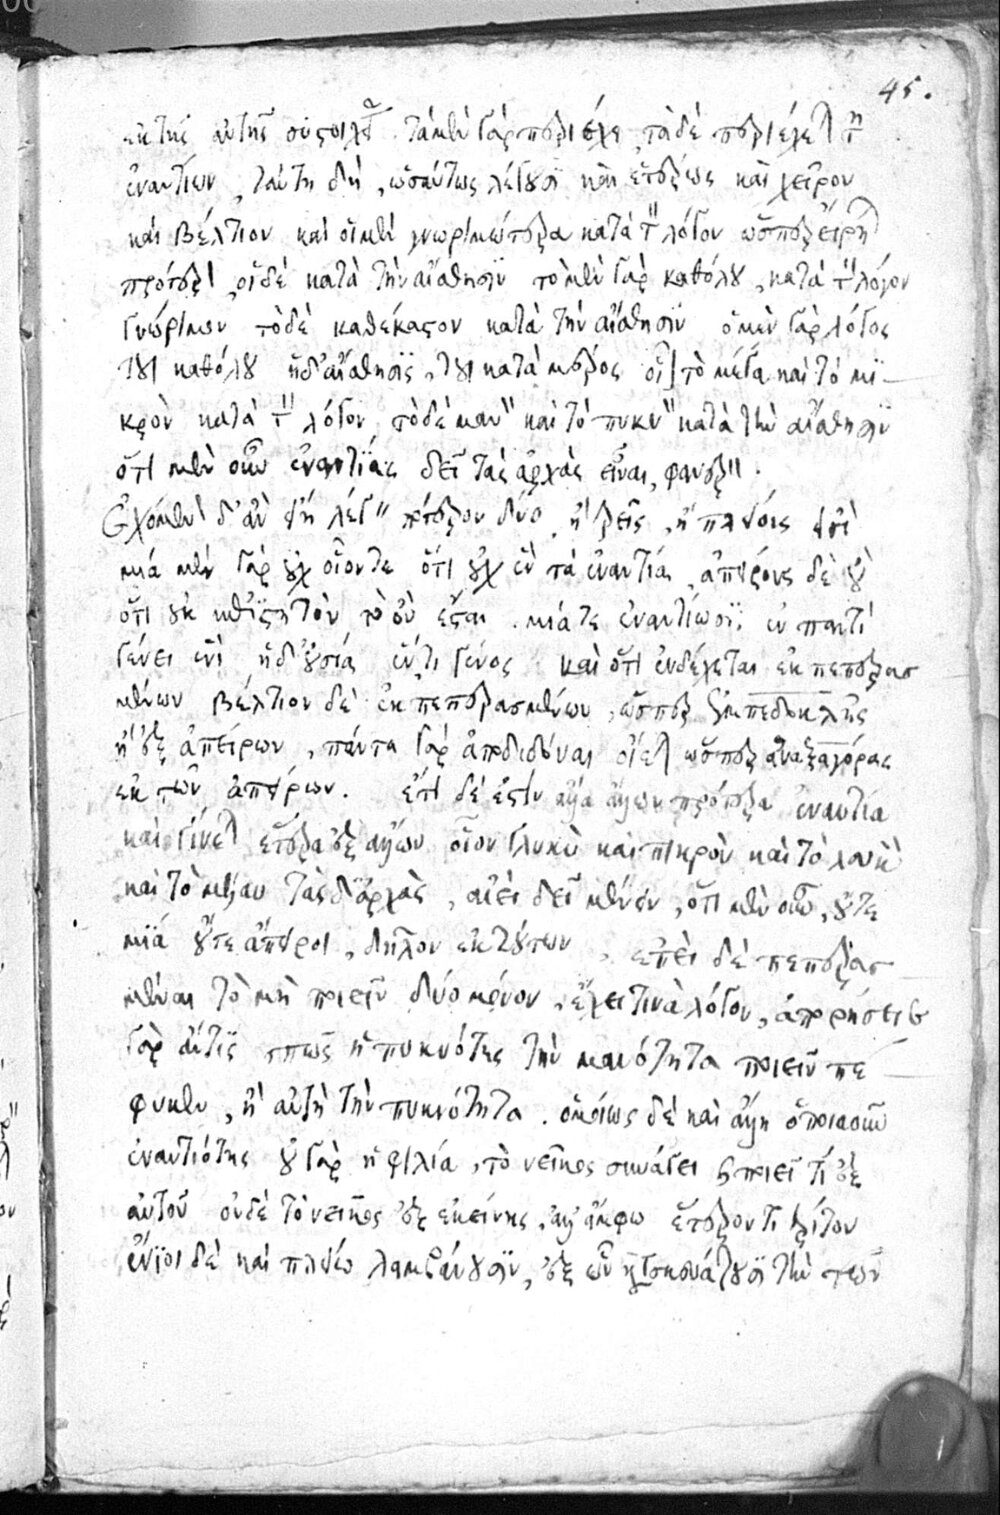 45.
ἐκ τῆς αὐτῆς συστοιχίας. τὰ μὲν γὰρ περιέχει, τὰ δὲ περιέχεται τῶν
ἐναντίων, ταύτῃ δὴ, ὡσαύτως λέγουσι καὶ ἑτέρως καὶ χεῖρον
καὶ βέλτιον καὶ οἱ μὲν γνωριμώτερα κατὰ τὸν λόγον ὥσπερ εἴρηται
πρότερον, οἱ δὲ κατὰ τὴν αἴσθησιν τὸ μὲν γὰρ καθόλου, κατὰ τὸν λόγον
γνώριμον τὸ δὲ καθέκαστον κατὰ τὴν αἴσθησιν ὁ μὲν γὰρ λόγος
τοῦ καθόλου ἡ δ' αἴσθησις, τοῦ κατὰ μέρος οἷον τὸ μέγα καὶ τὸ μι-
κρὸν κατὰ τὸν λόγον τὸ δὲ μανὸν καὶ τὸ πυκνὸν κατὰ τὴν αἴσθησιν
ὅτι μὲν οὖν ἐναντίας δεῖ τὰς ἀρχὰς εἶναι, φανερόν.
Ἐχόμενον δ' ἂν εἴη λέγειν πότερον δύο, ἢ τρεῖς, ἢ πλείους εἰσὶ
μία μὲν γὰρ οὐχ οἷόντε ὅτι οὐχ ἓν τὰ ἐναντία, ἀπείρους δὲ οὐ
ὅτι οὐκ ἐπιστητὸν τὸ ὂν ἔσται. μία τε ἐναντίωσις ἐν παντὶ
γένει ἑνὶ ἡ δ' οὐσία ἕν τι γένος καὶ ὅτι ἐνδέχεται ἐκ πεπερασ
μένων βέλτιον δὲ ἐκ πεπερασμένων, ὥσπερ Ἐμπεδοκλῆς
ἢ ἐξ ἀπείρων, πάντα γὰρ ἀποδιδόναι οἴεται ὥσπερ ἀναξαγόρας
ἐκ τῶν ἀπείρων. ἔτι δέ ἐστιν ἄλλα ἄλλων πρότερα ἐναντία
καὶ γίνεται ἕτερα ἐξ ἄλλων οἷον γλυκὺ καὶ πικρὸν καὶ τὸ λευκὸν
καὶ τὸ μέλαν τὰς δ' ἀρχὰς, αἰεὶ δεῖ μένειν, ὅτι μὲν οὖν, οὔτε
μία οὔτε ἄπειροι, δῆλον ἐκ τούτων. ἐπεὶ δὲ πεπερασ
μέναι τὸ μὴ ποιεῖν δύο μόνον, ἔχει τινὰ λόγον, ἀπορήσειε
γὰρ ἄν τις πῶς ἡ πυκνότης τὴν μανότητα ποιεῖν πέ-
φυκεν, ἢ αὐτὴ τὴν πυκνότητα. ὁμοίως δὲ καὶ ἄλλη ὁποιαοῦν
ἐναντιότης οὐ γὰρ ἡ φιλία, τὸ νεῖκος συνάγει καὶ ποιεῖ τι ἐξ
αὐτοῦ οὐδὲ τὸ νεῖκος ἐξ ἐκείνης, ἀλλ' ἄμφω ἕτερόν τι τρίτον
ἔνιοι δὲ καὶ πλείω λαμβάνουσιν, ἐξ ὧν κατασκευάζουσι τὴν τῶν